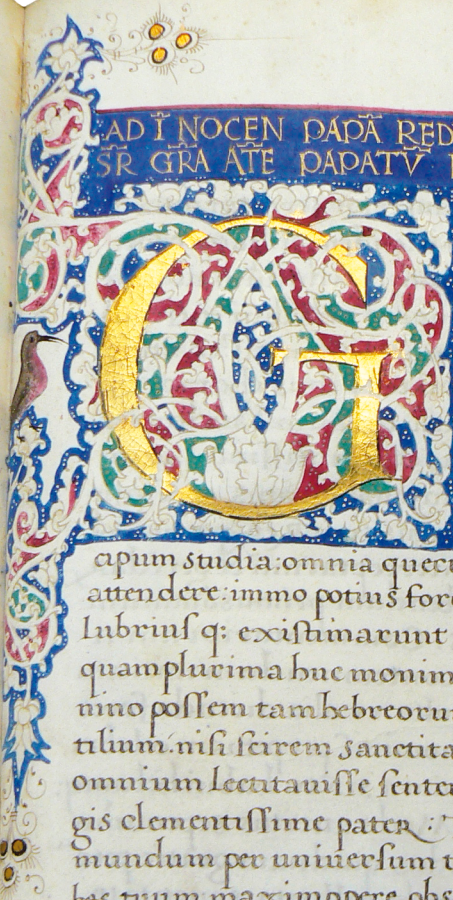 AD ĪNOCEN PAPĀ RED
SR̄ GR̄A ĀTE PAPATV̄
G
cipum studia: omnia quecu
attendere: immo potius fore
lubriuſ q; exiſtimarunt
quamplurima huc monim
nino poſſem tam hebreoru
tilium: niſi ſcirem sanctita
omnium lectitaviſſe ſenten
gis clementiſſime pater:
mundum per univerſum t
maximopere obs